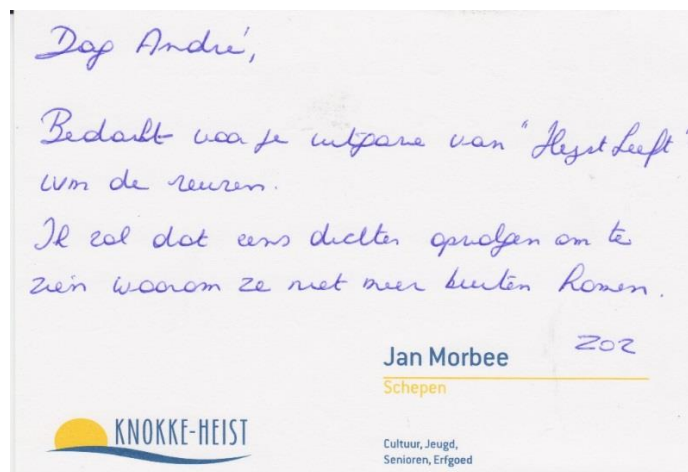 Dag André,
Bedankt voor je uitgave van "Heyst Leeft"
ivm de reuzen.
Ik zal dat eens dichter opvolgen om te
zien waarom ze niet meer buiten komen.
ZOZ
Jan Morbee
Schepen
KNOKKE-HEIST
Cultuur, Jeugd,
Senioren, Erfgoed